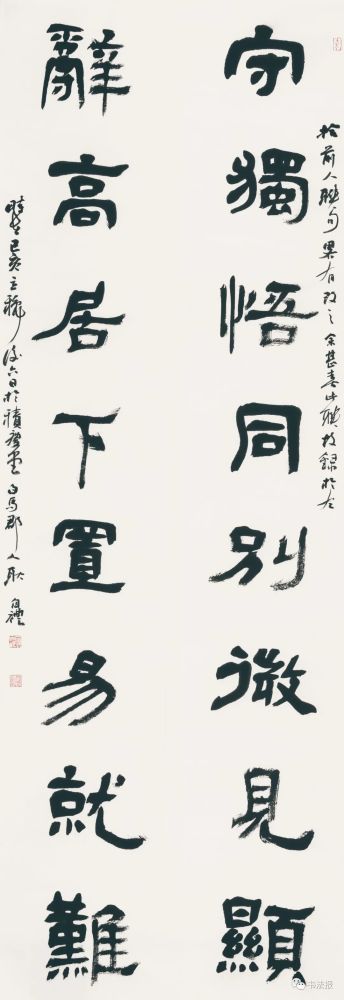 拾前人聯句畧有改之余甚喜此聯故録於左
守獨悟同別微見顯
辭高居下置易就難
時在己亥立秋後六日於積堂白馬郡人耿自禮
书法报